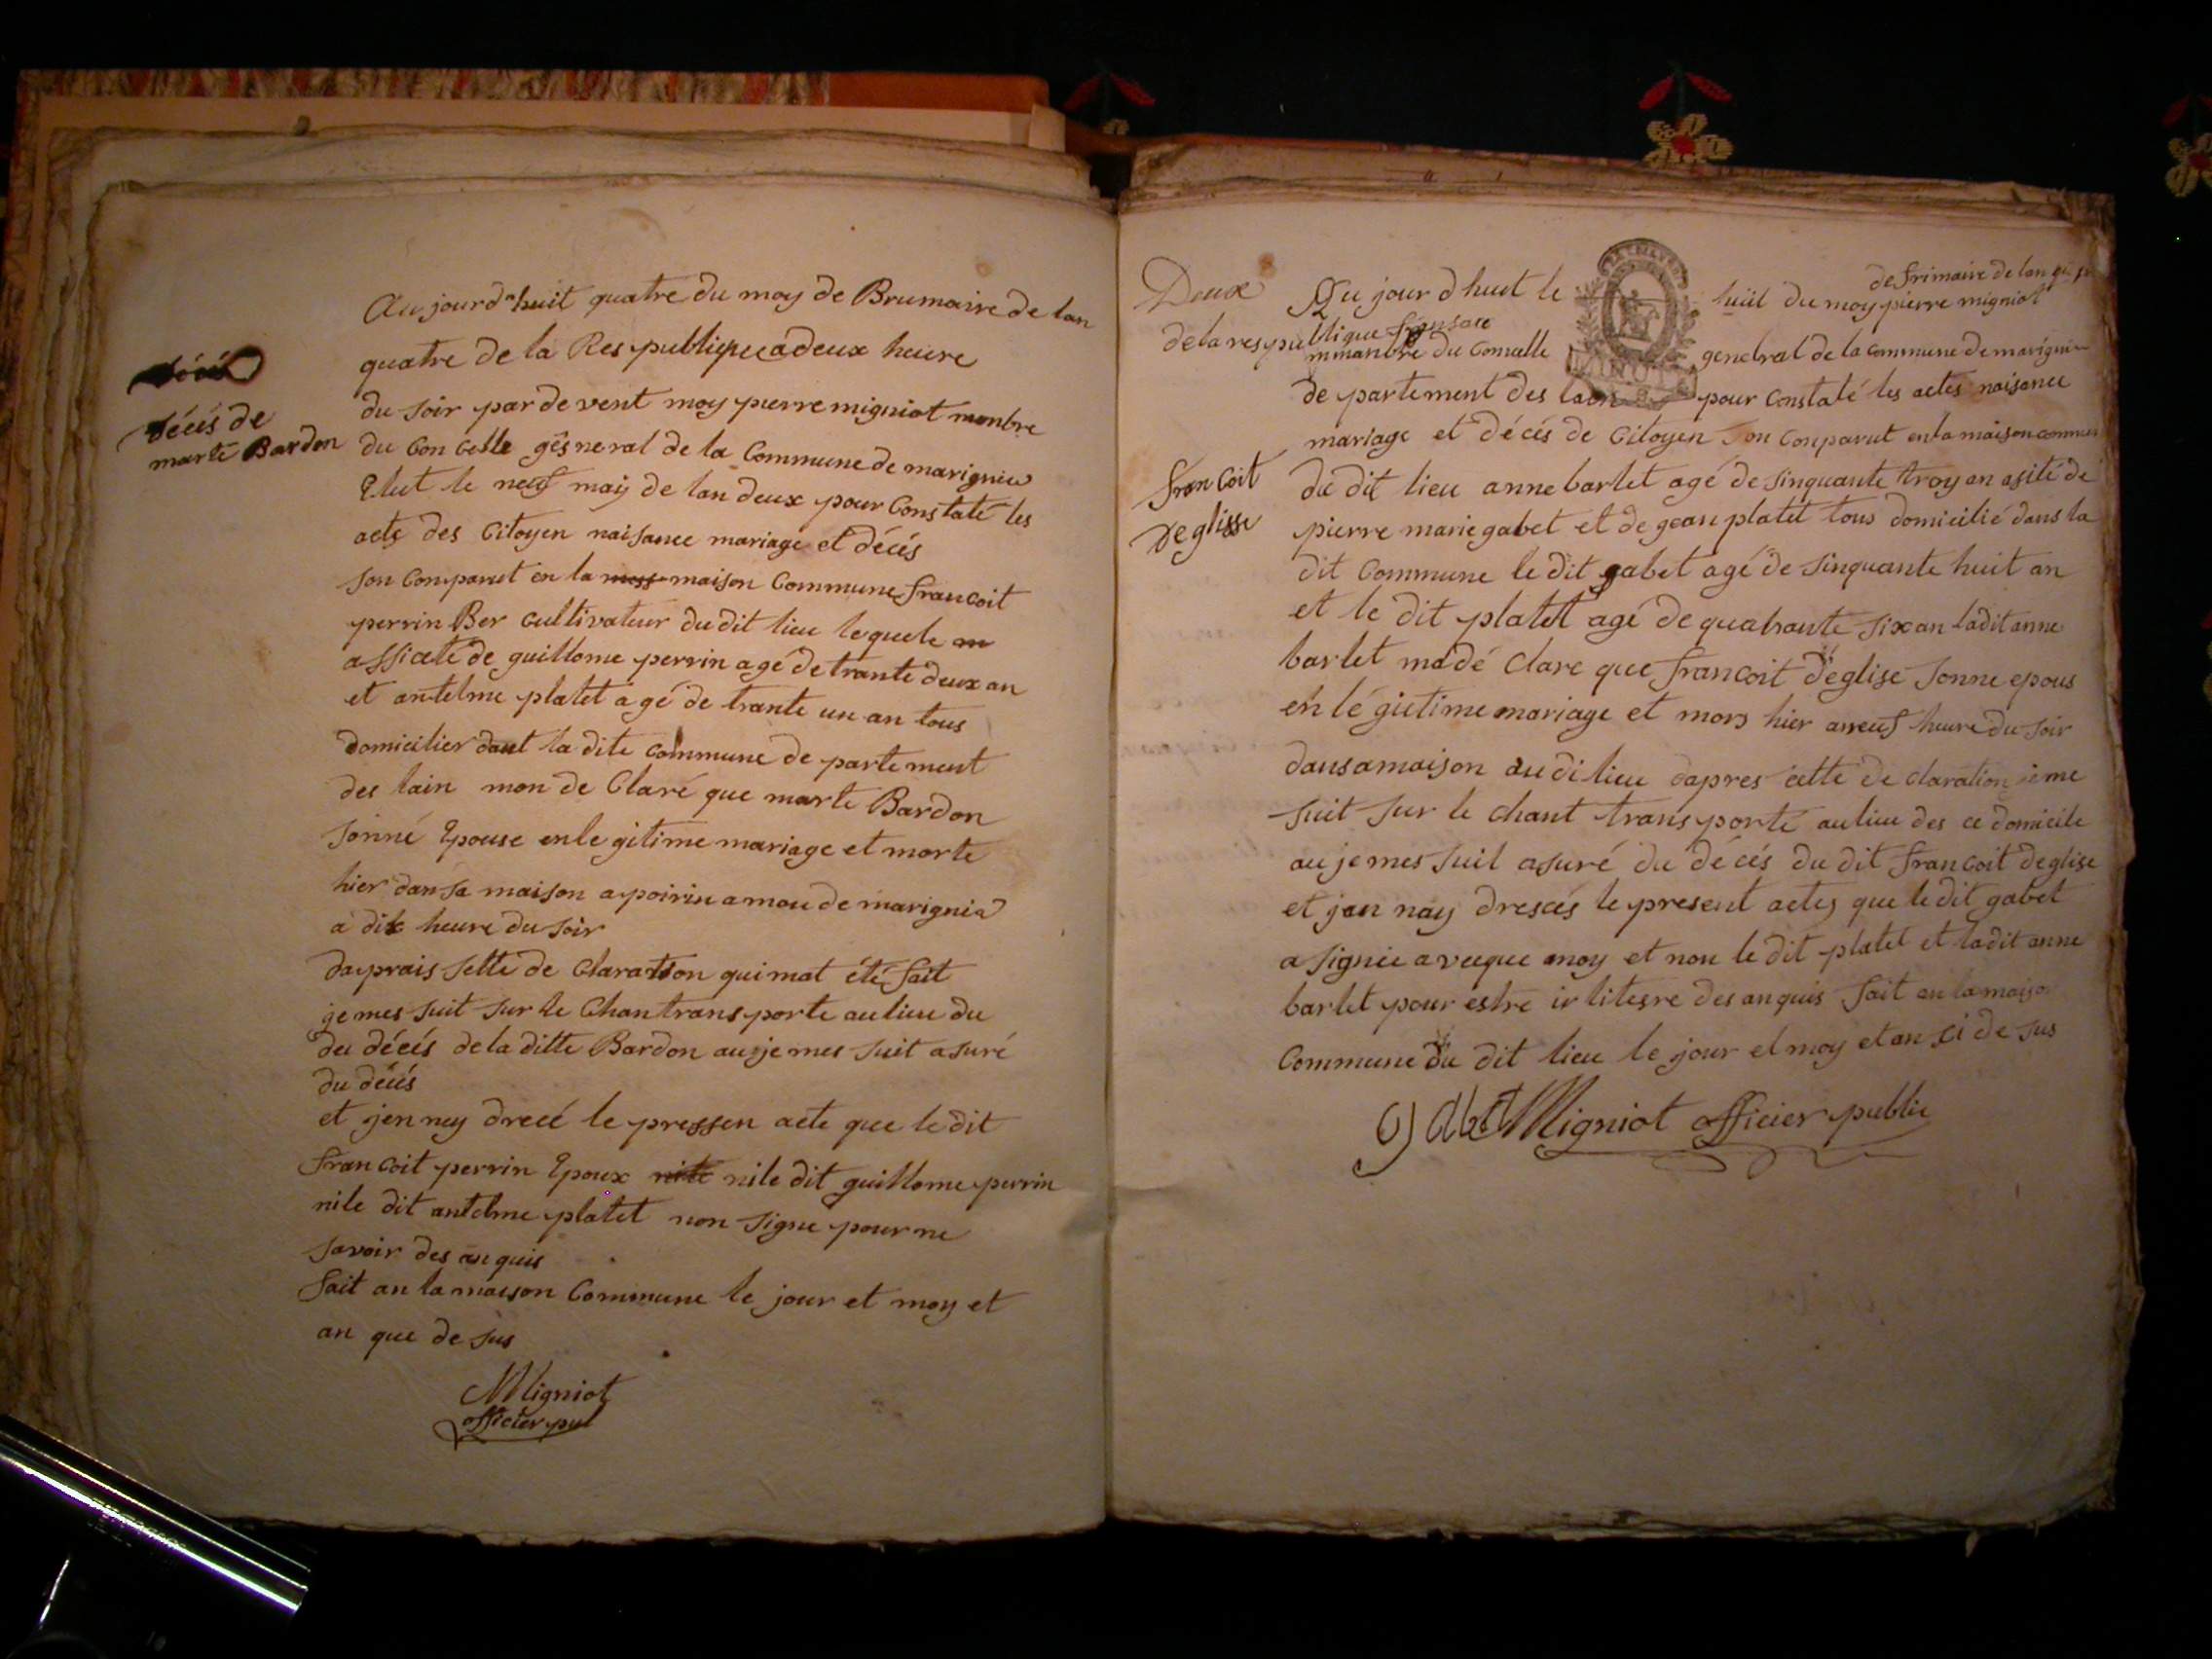 décés de
marte Bardon
Aujourd'huit quatre du moy de Brumaire de lan
quatre de la Respublique a deux heure
du soir par de vent moy pierre migniot menbre
du Con celle gesneral de la Commune de marignieu
Elut le neuf may de lan deux pour Constaté les
acts des Citoyen naisance mariage et décés
son Comparut en la maison Commune francoit
perrin Ber cultivateur du dit lieu lequele
assiceté de guillome perrin agé de trante deux an
et antelme platet agé de trante un an tous
domicilier dant la dite commune de partement
des lain mon de Claré que marte Bardon
sonné Epouse en le gitime mariage et morte
hier dan sa maison a poirin amon de marignia
a dix heure du soir
daprais sette de Claration qui mat été fait
je mes suit sur le Chan transporte au lieu du
du décés de la ditte Bardon au je mes suit asuré
du décés
et jen ney drecé le pressen acte que le dit
francoit perrin Epoux nile dit guillome perrin
nile dit antelme platet non signe pour ne
savoir des an quis
fait an la maison Commune le jour et moy et
an que de sus
Migniot
officier pul
Deux
de frimaire de lan
Au jour d huit le huit du moy pierre migniot
de la respublique fransaice
mmanbre du Concelle general de la commune de marignieu
de partement des lain pour constaté les actes naisance
mariage et décés de Citoyen son Conparut en la maison commun
francoit
deglisse
du dit lieu anne barlet agé de sinquante troy an asité de
pierre marie gabet et de jean platet tous domicilié dans la
dit Commune le dit gabet agé de sinquante huit an
et le dit platet agé de quatrante six an ladit anne
barlet ma dé clare que francoit deglise sonne epous
en lé gietime mariage et mors hier aneuf heure du soir
dansamaison au di lieu dapres cette de claration je me
suit sur le chant transporté au lieu des ce domicile
au je mes suit asuré du décés du dit francoit deglise
et jen nay drescés le present actes que le dit gabet
a signée a vecque moy et non le dit platet et ladit anne
barlet pour estre ir litesre des anquis fait en la maison
Commune du dit lieu le jour el moy et an ci de sus
gabet Migniot officier public